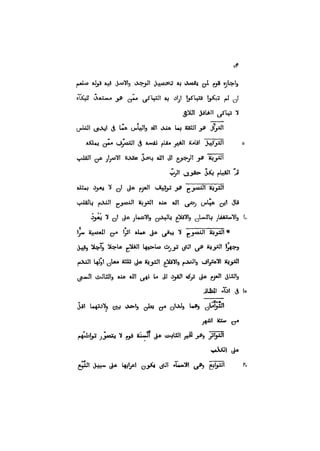 ٧٠
واجازه قوم لمن يقصد به تحصيل الوجد والاصل فيه قوله صلعم
ان لم تبكوا فتباكوا اراد به التباكى ممّن هو مستعدّ للبكآء
لا تباكى الغافل اللاهى
التوكّل هو الثقة بما عند الله واليأس عمّا فى ايدى الناس
٥ التوكيل اقامة الغير مقام نفسه فى التصرّف ممّن يملكه
التوبة هو الرجوع الى الله بحلّ عقدة الاصرار عن القلب
ثمّ القيام بكلّ حقوق الربّ
التوبة النصوح هو توثيق العزم على ان لا يعود بمثله
قال ابن عبّاس رضى الله عنه التوبة النصوح الندم بالقلب
١٠ والاستغفار باللسان والاقلاع بالبدن والاضمار على ان لا يَعُودَ
* التوبة النصوح لا يبقى على عمله اثرًا من المعصية سرًّا
وجهرًا التوبة هى التى تورث صاحبها الفلاح عاجلا وآجلا وقيل
التوبة الاعتراف والندم والاقلاع التوبة على ثلثة معان اوّلها الندم
والثانى العزم على ترك العود الى ما نهى الله عنه والثالث السعى
١٥ فى ادآء المظالم
التَّوْأَمان وهما ولدان من بطن واحد بين ولادتهما اقلّ
من ستّة اشهر
التواتر وهو الخبر الثابت على أَلْسِنَة قوم لا يتصوّر تواطُئهم
على الكذب
٢٠ التوابع وهى الاسمآء التى يكون اعرابها على سبيل التَبَع